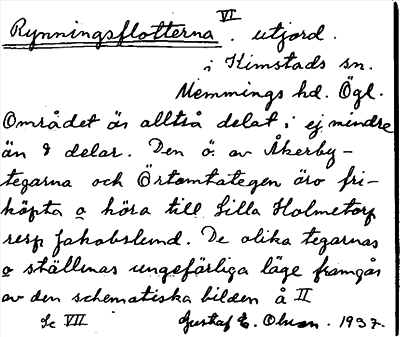 Rynningsflotterna VI. utjord.
i Kimstads sn.
Memmings hd. Ögl.
Området är alltså delat i ej mindre
än 8 delar. Den ö. av Åkerby-
tegarna och Örtomtategen äro fri-
köpta o höra till Lilla Holmetorp
resp Jakobslund. De olika tegarnas
o ställenas ungefärliga läge framgår
av den schematiska bilden å II
Se VII Gustaf E. Olsson. 1937.